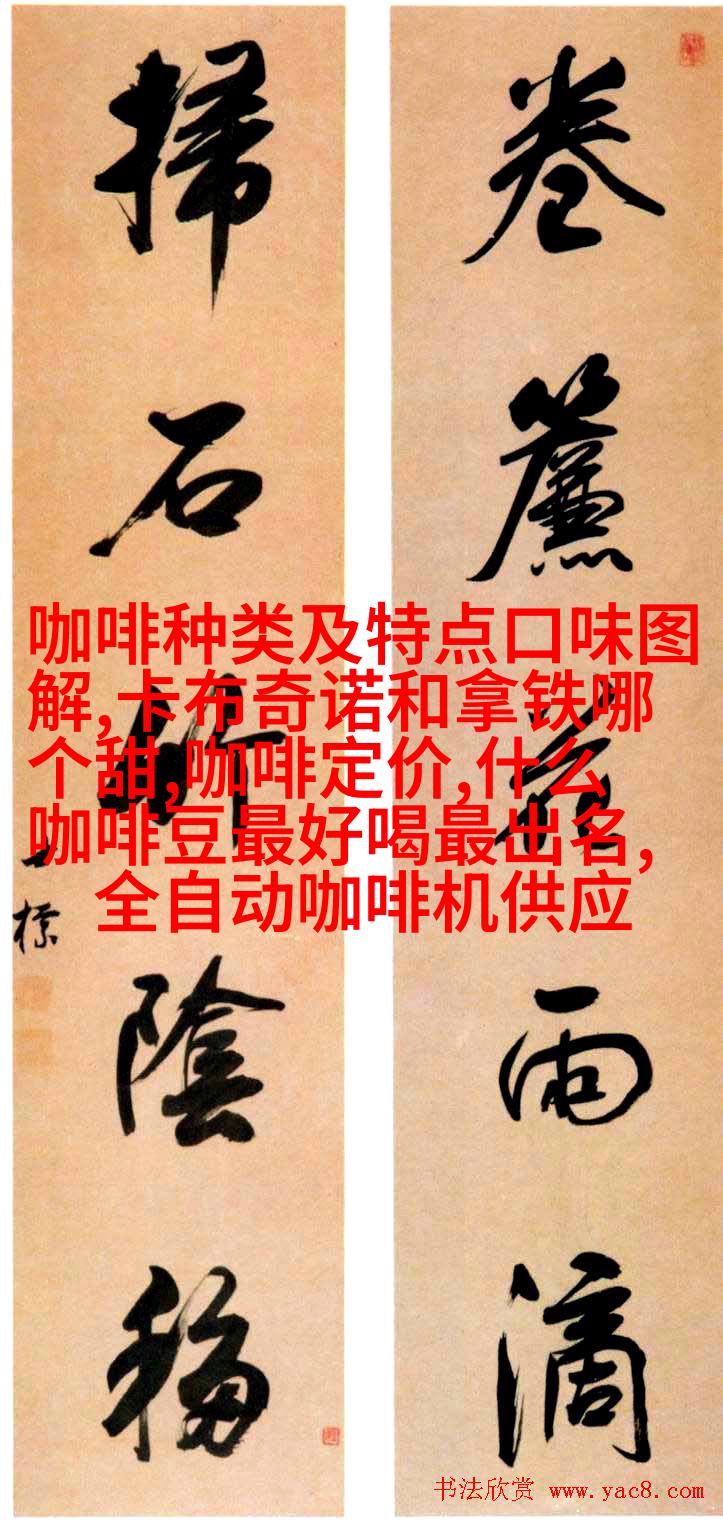 卷簾花雨滴
掃石竹陰移
士標
咖啡种类及特点口味图
解,卡布奇诺和拿铁哪
个甜,咖啡定价,什么
咖啡豆最好喝最出名,
全自动咖啡机供应
书法欣赏 www.yac8.com